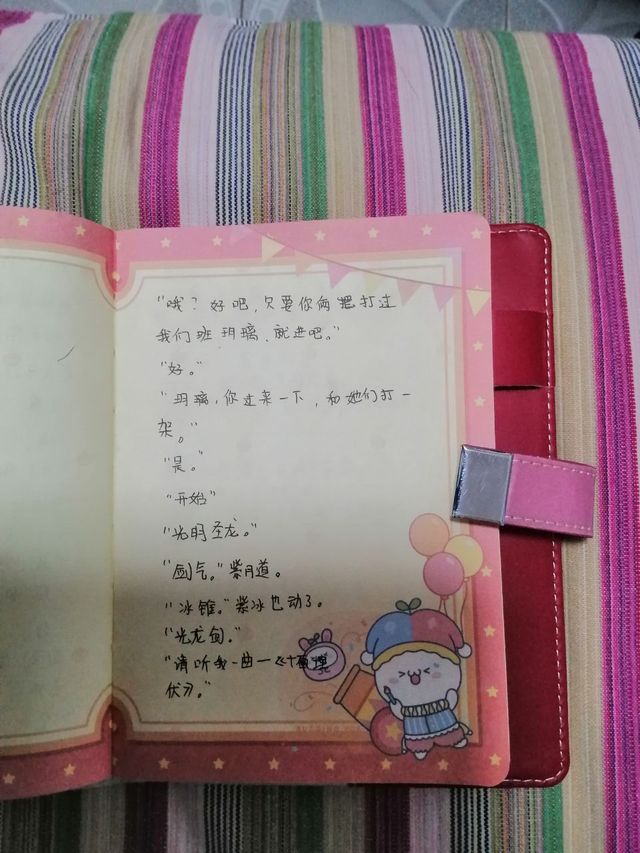 “哦？好吧，只要你俩把打过
我们班玥璃，就进吧。”
“好。”
“玥璃，你过来一下，和她们打一
架。”
“是。”
“开始”
“光明圣龙。”
“剑气。”紫月道。
“冰锥。”紫冰也动了。
“光龙剑。”
“请听我一曲一《十面埋
伏》。”